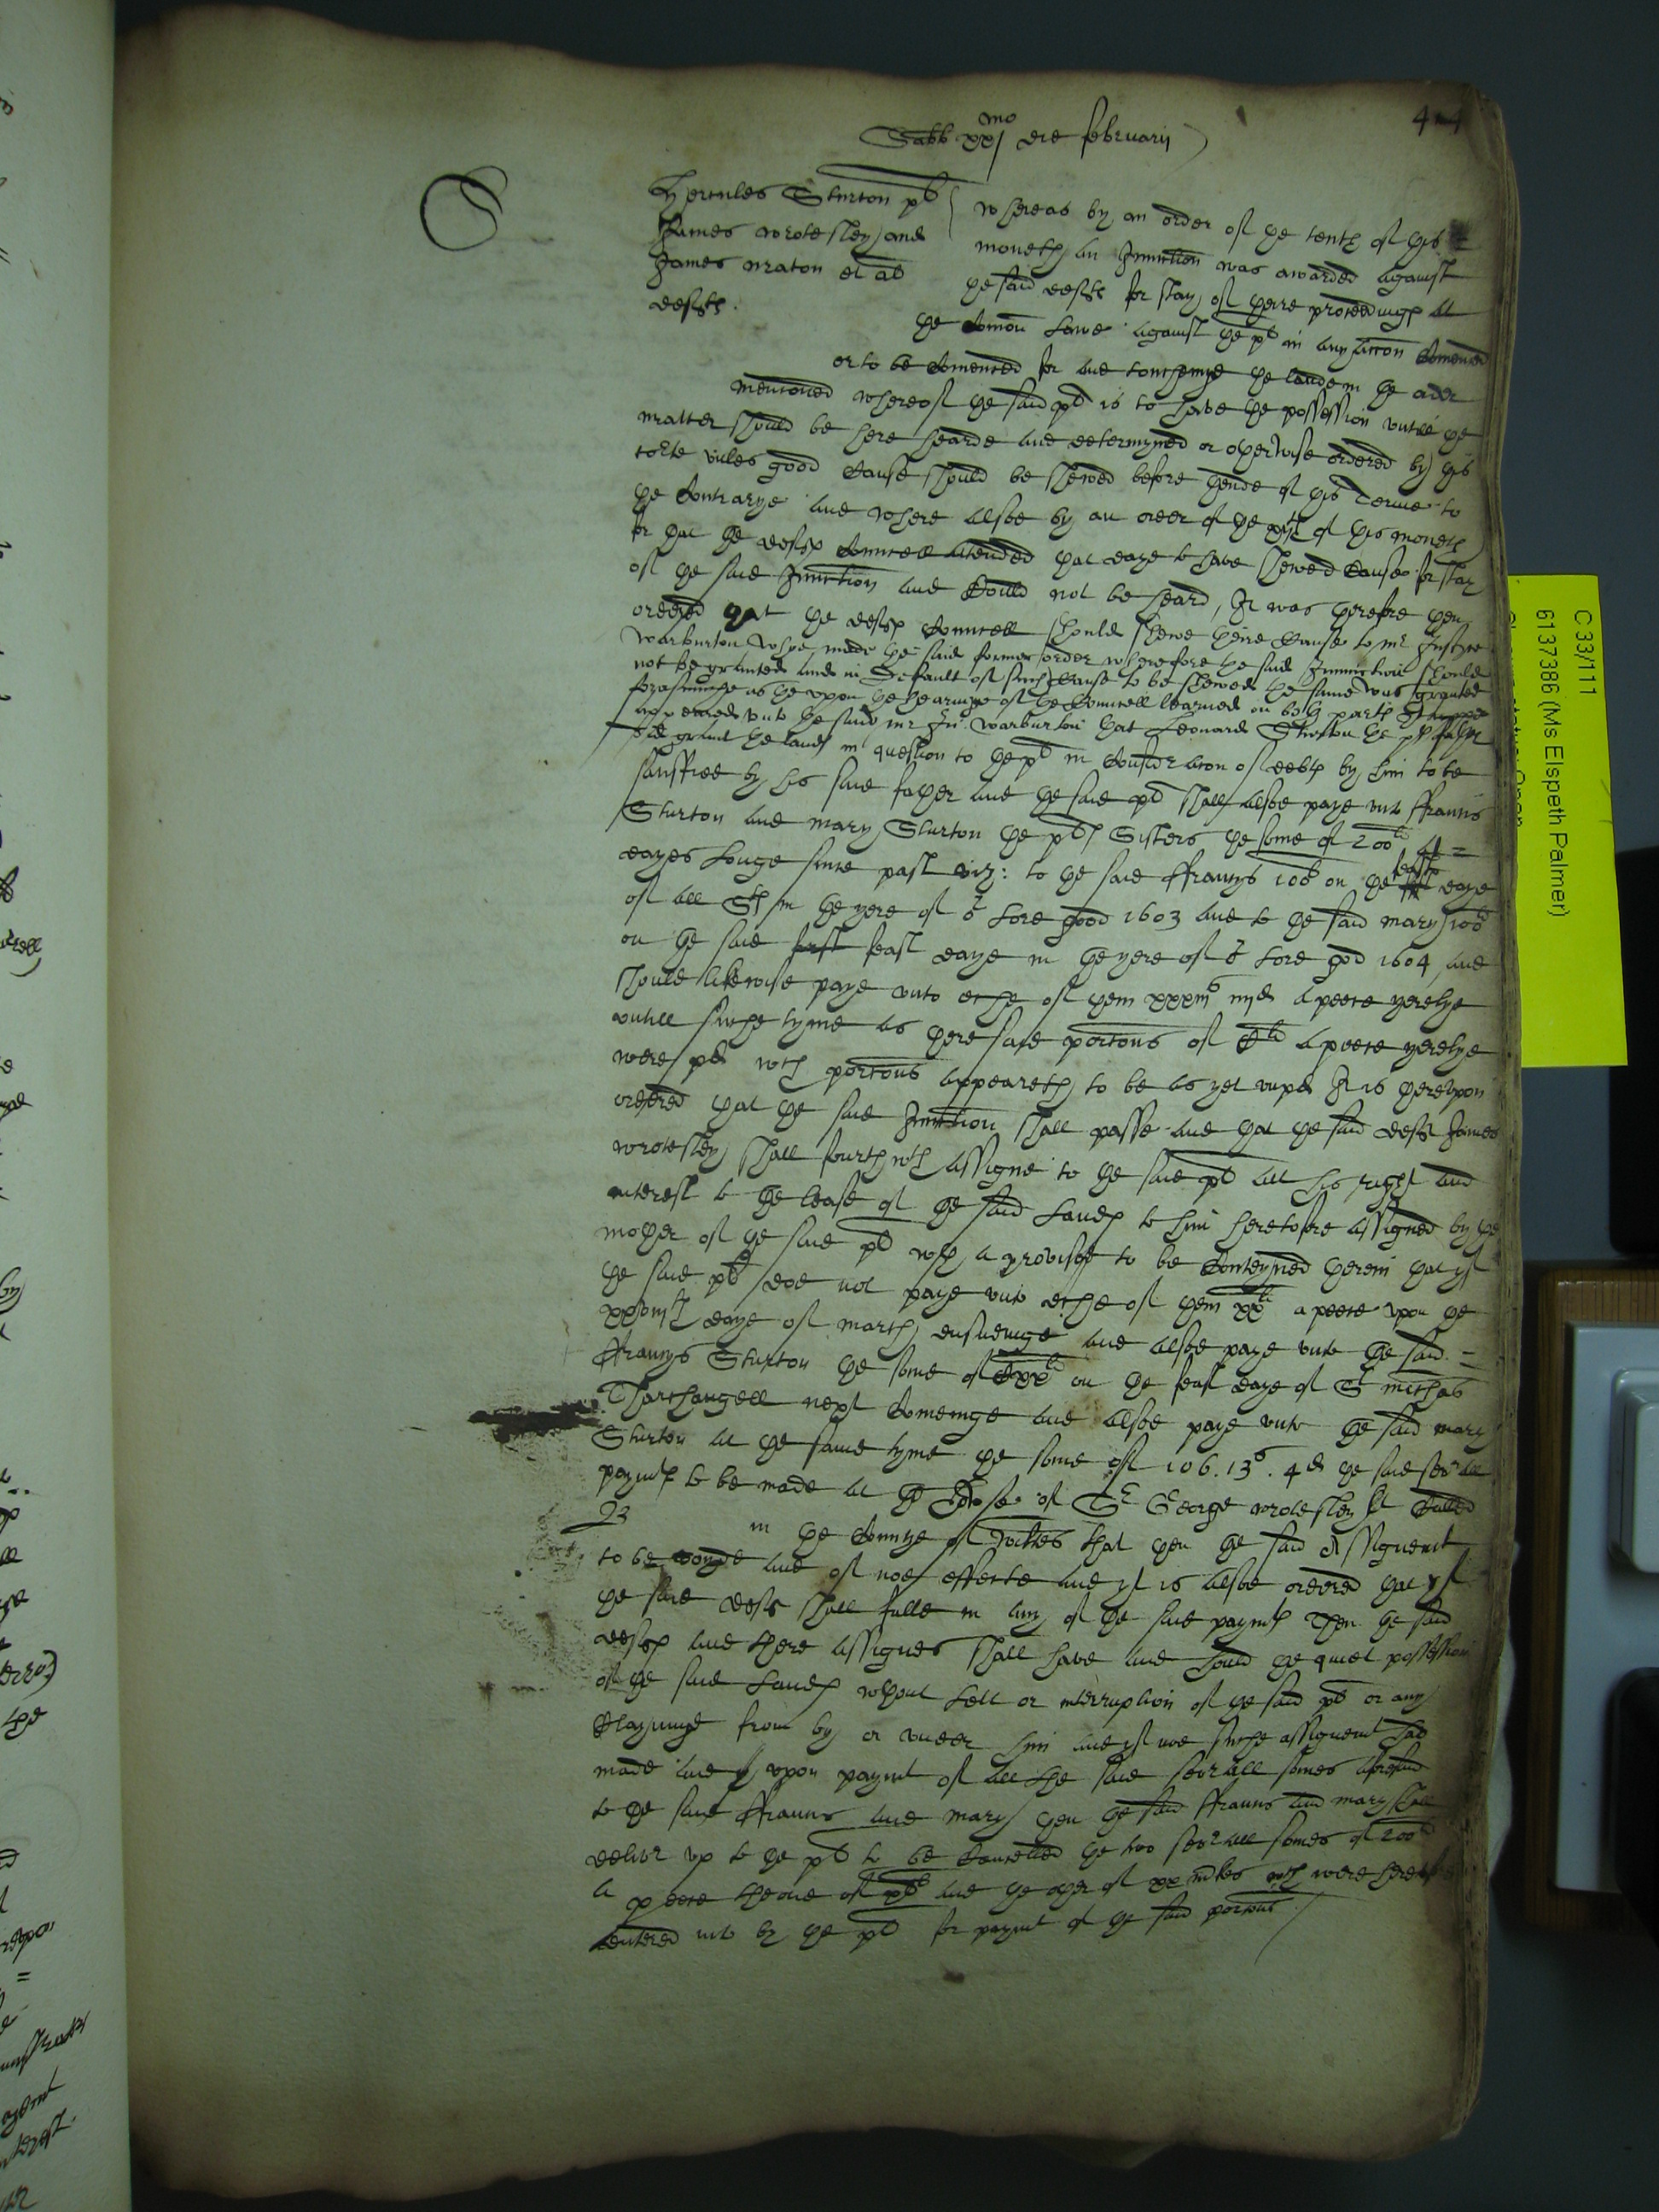 414
Sabb xxj mo die februarij
Hercules Sturton pl
James wrotesley and
James et al
defts.
whereas by an order of the tenth of this
moneth an Iniunction was awarded against
the said defts for stay of theire proceedings at
the Comon Lawe against the pl in any accon Comenced
or to be Comenced for and touchinge the lande in the order
mencioned whereof the said pl is to have the possession untill the
matter should be here hearde and determyned or otherwise ordered by this
Corte unles good Cause should be shewed before thende of this Terme to
the Contrarye and where alsoe by an order of the of this moneth
for that the defts Councell attended that daye to have shewed Cause for stay
of the said Iniunction and Could not be heard, It was therefore then
ordered that the defts Councell should shewe theire Cause to mr Justice
Warburton whoe made the said former order wherefore the said Iniunction should
not be graunted and in Default of such Cause to be shewed the same was graunted
forasmuche as the upon the hearinge of the Councell learned on both parts
appeared unto the said mr Ju: Warburton that Leonard Sturton the pl father
did graunt the lands in question to the pl in Consideracon of debts by him to be
sattisfied by his said father and the said pl shall alsoe paye unto ffrancis
Sturton and mary Sturton the pls Sisters the some of 200li at =
dayes Longe since past viz: to the said ffrancys 100li on the feast daye
of all Sts in the yere of or Lord god 1603 and to the said mary 100li
on the said feast daye in the yere of or Lord god 1604 and
should likewise paye unto eche of them iiijd a peece yerelye
untill suche tyme as there said porcons of Cli a peece yerelye
were pd wch porcons appeareth to be as yet unpd It is thereupon
ordered that the said Iniunction shall passe and that the said deft James
wrotesley shall fourthwth assigne to the said pl all his right and
interest to the lease of the said Lands to him heretofore assigned by the
mother of the said pl wth a provisoe to be Conteyned therein that yf
the said pl doe not paye unto eche of them xxli a peece upon the
daye of march ensuinge and alsoe paye unto the said =
ffrancys Sturton the some of on the feast daye of St michas
Tharchangell next Cominge and alsoe paye unto the said mary
Sturton at the same tyme the some of 106. 13s. 4d the said sevrall
paymts to be made at the house of Sr George wrotesley kt Called
in the Countye of that then the said Assignemt
to be voyde and of noe effecte and yt is alsoe ordered that yf
the said deft shall faile in any of the said paymts Then the said
defts and there assignes shall have and hould the quiet possession
of the said Lands wthout Lett or interruption of the said pl or any
Clayminge from by or under him and yf noe suche assignemt had
made and upon paymt of all the said sevrall somes aforesaid
to the said ffrancis and mary then the said ffrancis and mary shall
deliver up to the pl to be Cancelled the two sevrall somes of 200li
a peece the one of and the other of xx mrkes wch were
entered into by the pl for paymt of the said porcons
C 33/111
6137386 (Ms Elspeth Palmer)